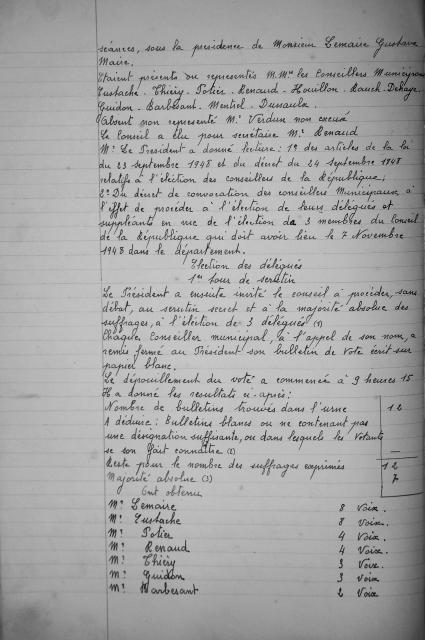 séances, sous la présidence de Monsieur Lemaire Gustave
Maire.
Etaient présents ou représentés M.Mrs les Conseillers Municipaux
Eustache - Thiéry - Potier - Renaud - Houillon - Rauch - Dehaye
Guidon - Barbesant - Mentiel - Dussaulx.
Absent non représenté Mr Verdun non excusé
Le Conseil a élu pour secrétaire Mr Renaud
Mr Le Président a donné lecture: 1º des articles de la loi
du 23 septembre 1948 et du décret du 24 septembre 1948
relatifs à l'élection des conseillers de la République;
2º Du décret de convocation des conseillers Municipaux à
l'effet de procéder à l'élection de leurs délégués et
suppléants en vue de l'élection de 3 membres du Conseil
de la République qui doit avoir lieu le 7 Novembre
1948 dans le département.
Election des délégués
1er tour de scrutin
Le Président a ensuite invité le conseil à procéder, sans
débat, au scrutin secret et à la majorité absolue des
suffrages, à l'élection de 3 délégués (1)
Chaque Conseiller municipal, à l'appel de son nom, a
remis fermé au Président son bulletin de Vote écrit sur
papier blanc.
Le dépouillement du vote a commencé à 9 heures 15
Il a donné les résultats ci-après:
Nombre de bulletins trouvés dans l'urne 12
A déduire: Bulletins blancs ou ne contenant pas
une désignation suffisante, ou dans lesquels les Votants
se son fait connaître (2) —
Reste pour le nombre des suffrages exprimés 12
Majorité absolue (3) 7
Ont obtenu
Mr Lemaire 8 Voix.
Mr Eustache 8 Voix.
Mr Potier 4 Voix.
Mr Renaud 4 Voix.
Mr Thiéry 3 Voix.
Mr Guidon 3 Voix
Mr Barbesant 2 Voix